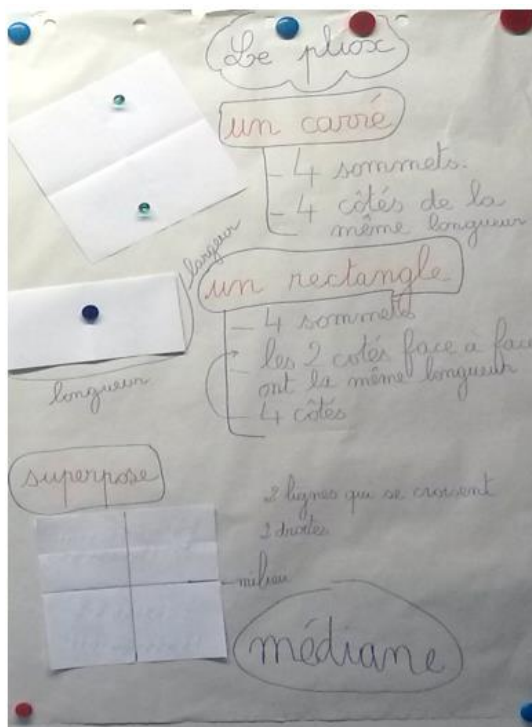 Le pliox
un carré
- 4 sommets.
- 4 côtés de la
même longueur
largeur
un rectangle
- 4 sommets
- les 2 cotés face à face
ont la même longueur
- 4 côtés
longueur
superpose
2 lignes qui se croisent
2 droites
milieu
médiane